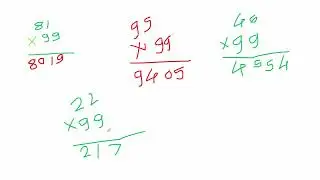 81
×99
8019
95
×99
9405
46
×99
4554
22
×99
217